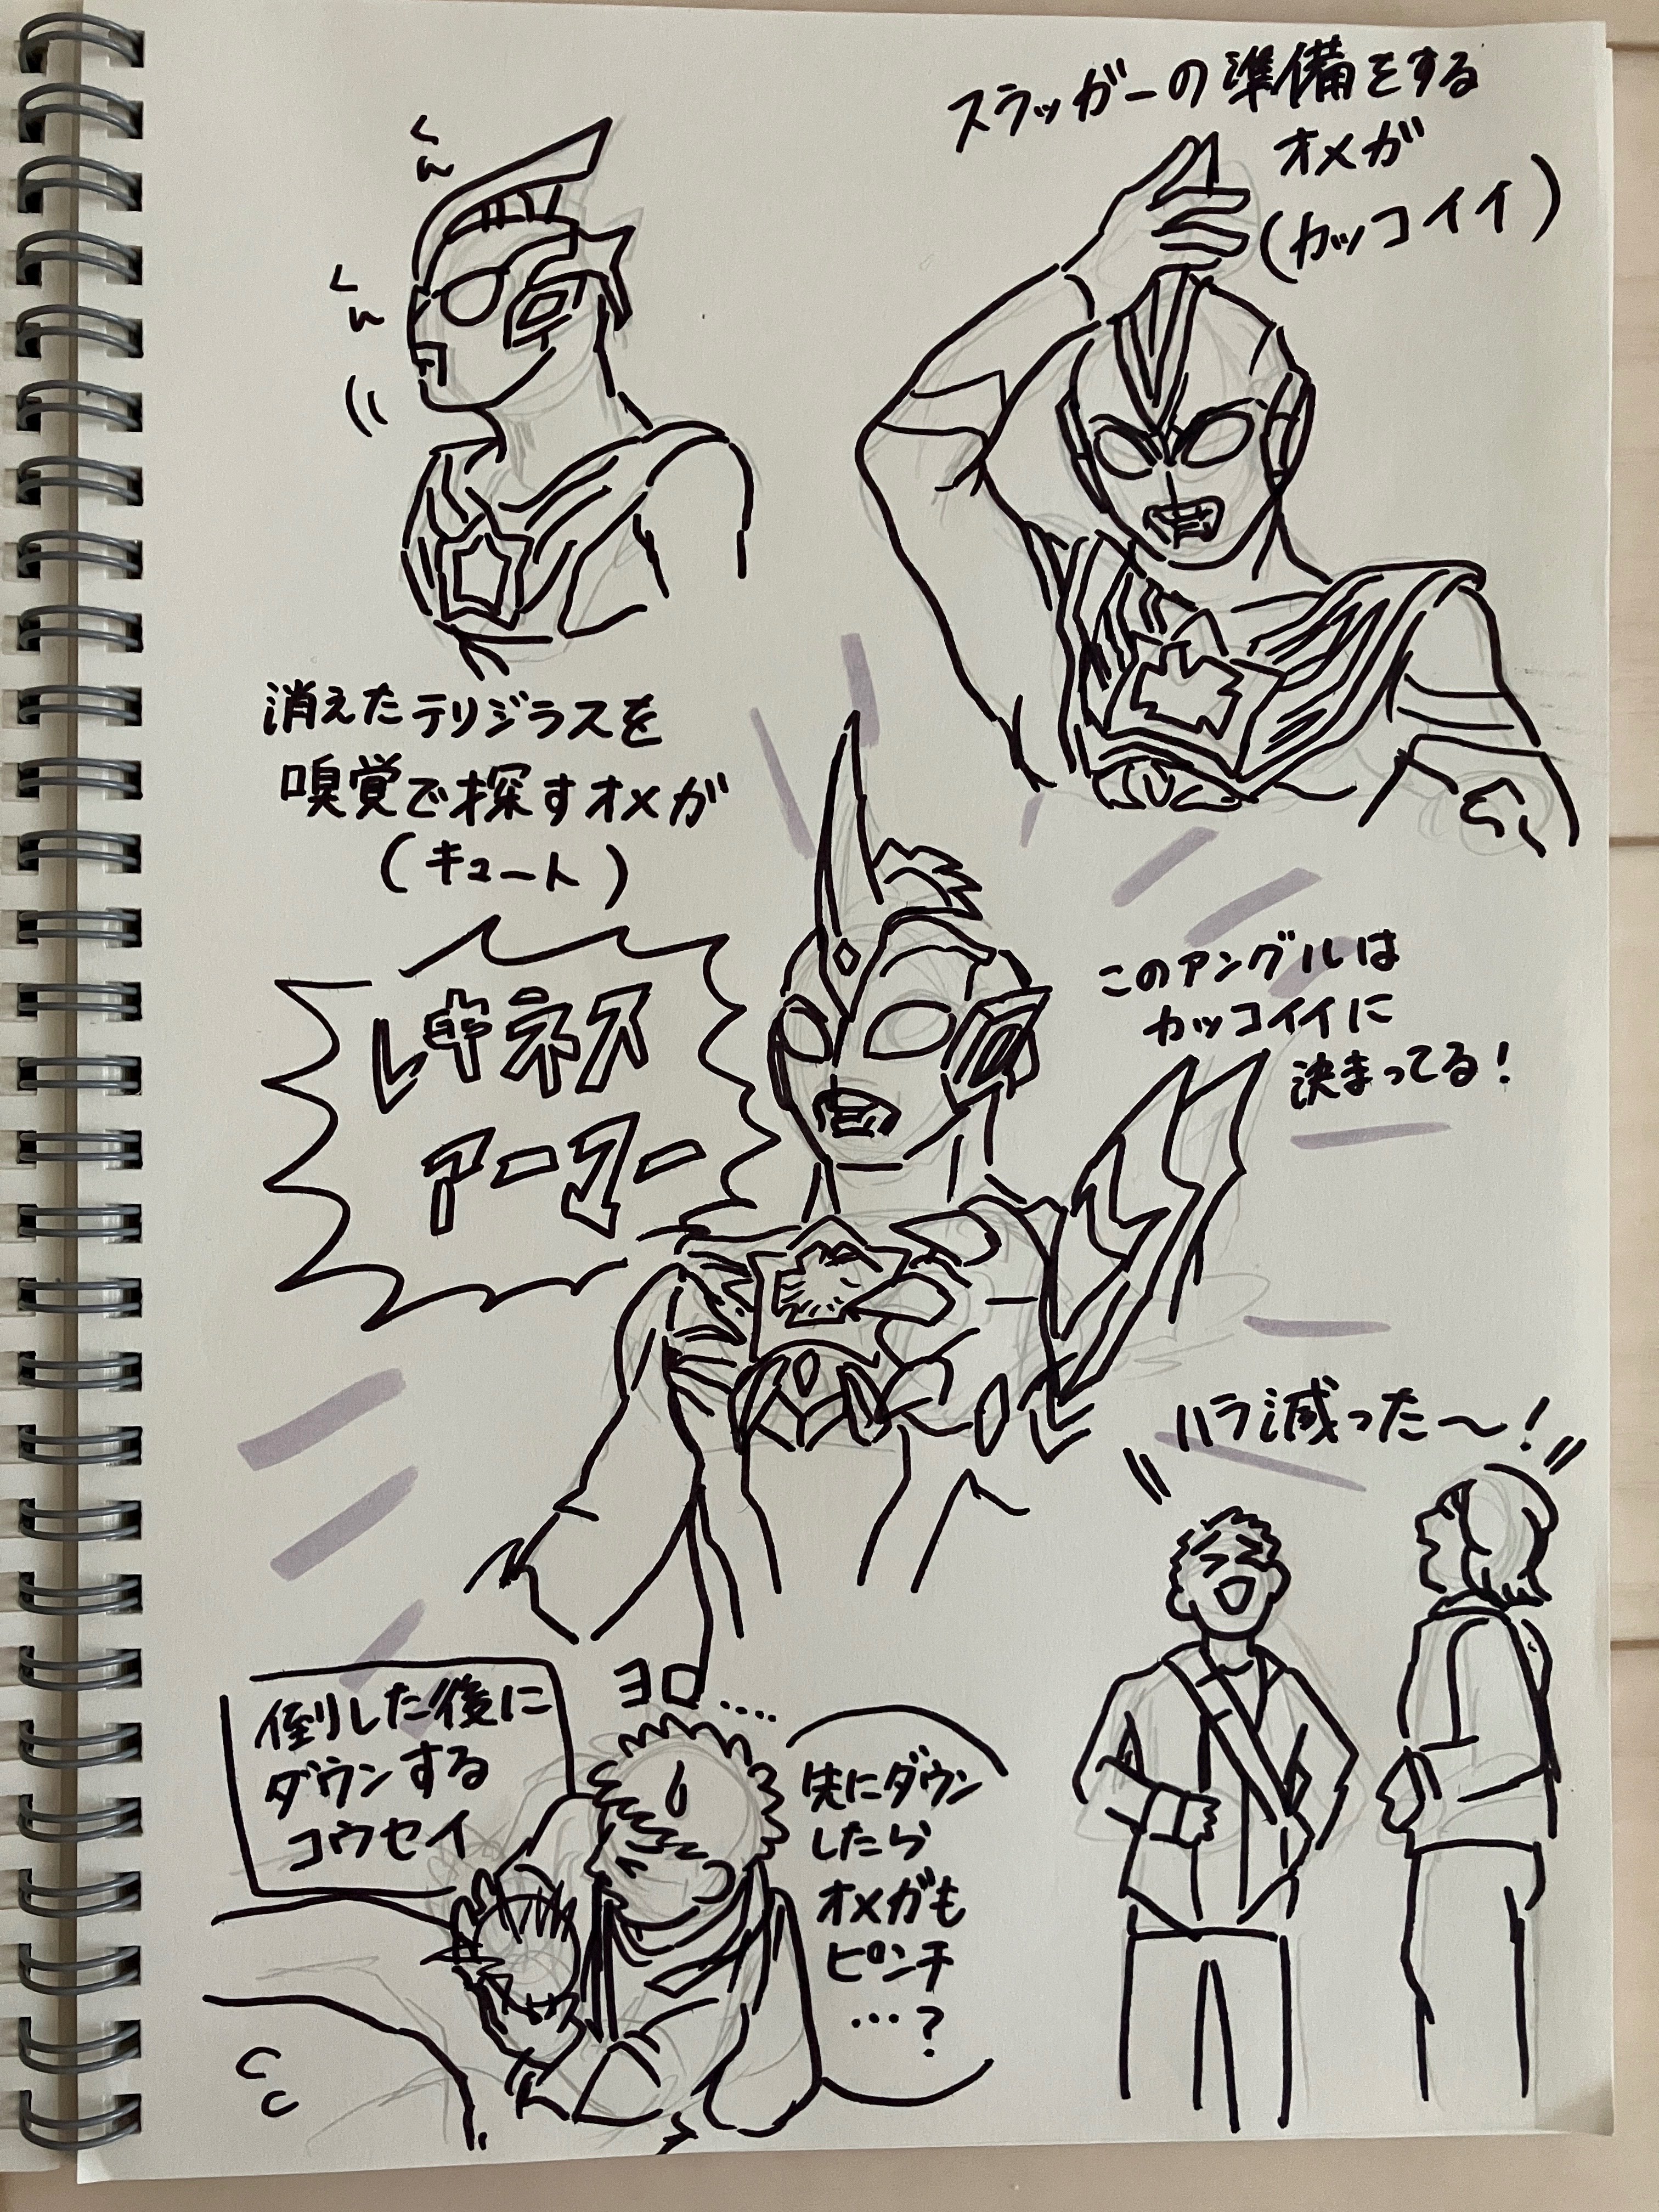 スラッガーの準備をする
オメガ
(カッコイイ)
くん
くん
消えたテリジラスを
嗅覚で探すオメガ
(キュート)
レキネス
アーマー
このアングルは
カッコイイに
決まってる!
ハラ減った〜!
ヨロ….
倒した後に
ダウンする
コウセイ
先にダウン
したら
オメガも
ピンチ
…?